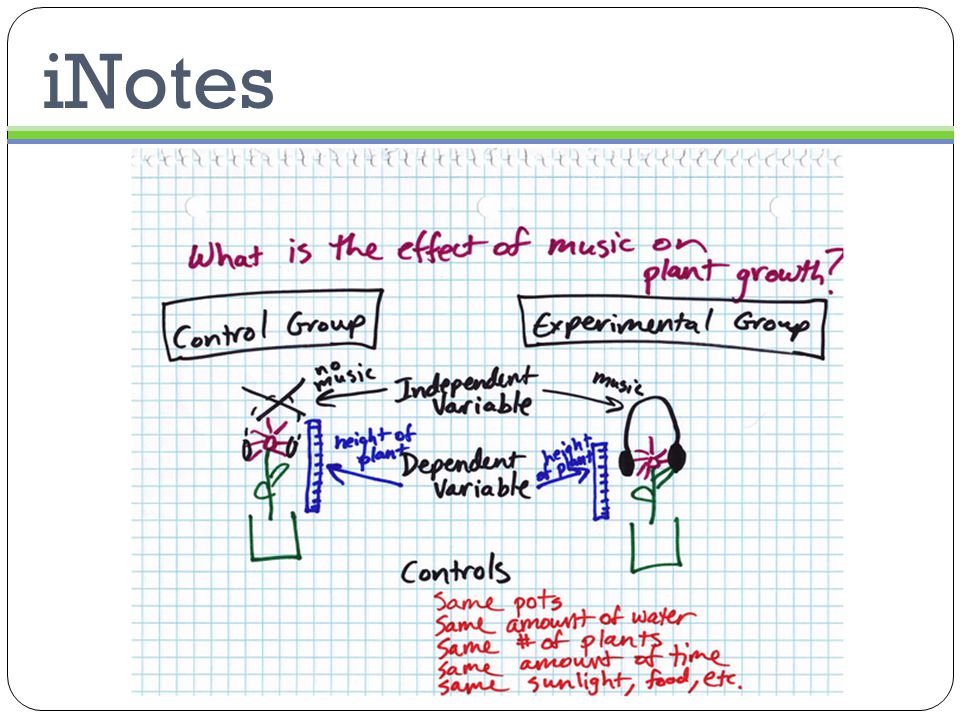 iNotes
What is the effect of music on
plant growth?
Control Group
Experimental Group
no
music
Independent
Variable
music
height of
plant
Dependent
Variable
height
of plant
Controls
Same pots
Same amount of water
Same # of plants
same amount of time
same sunlight, food, etc.